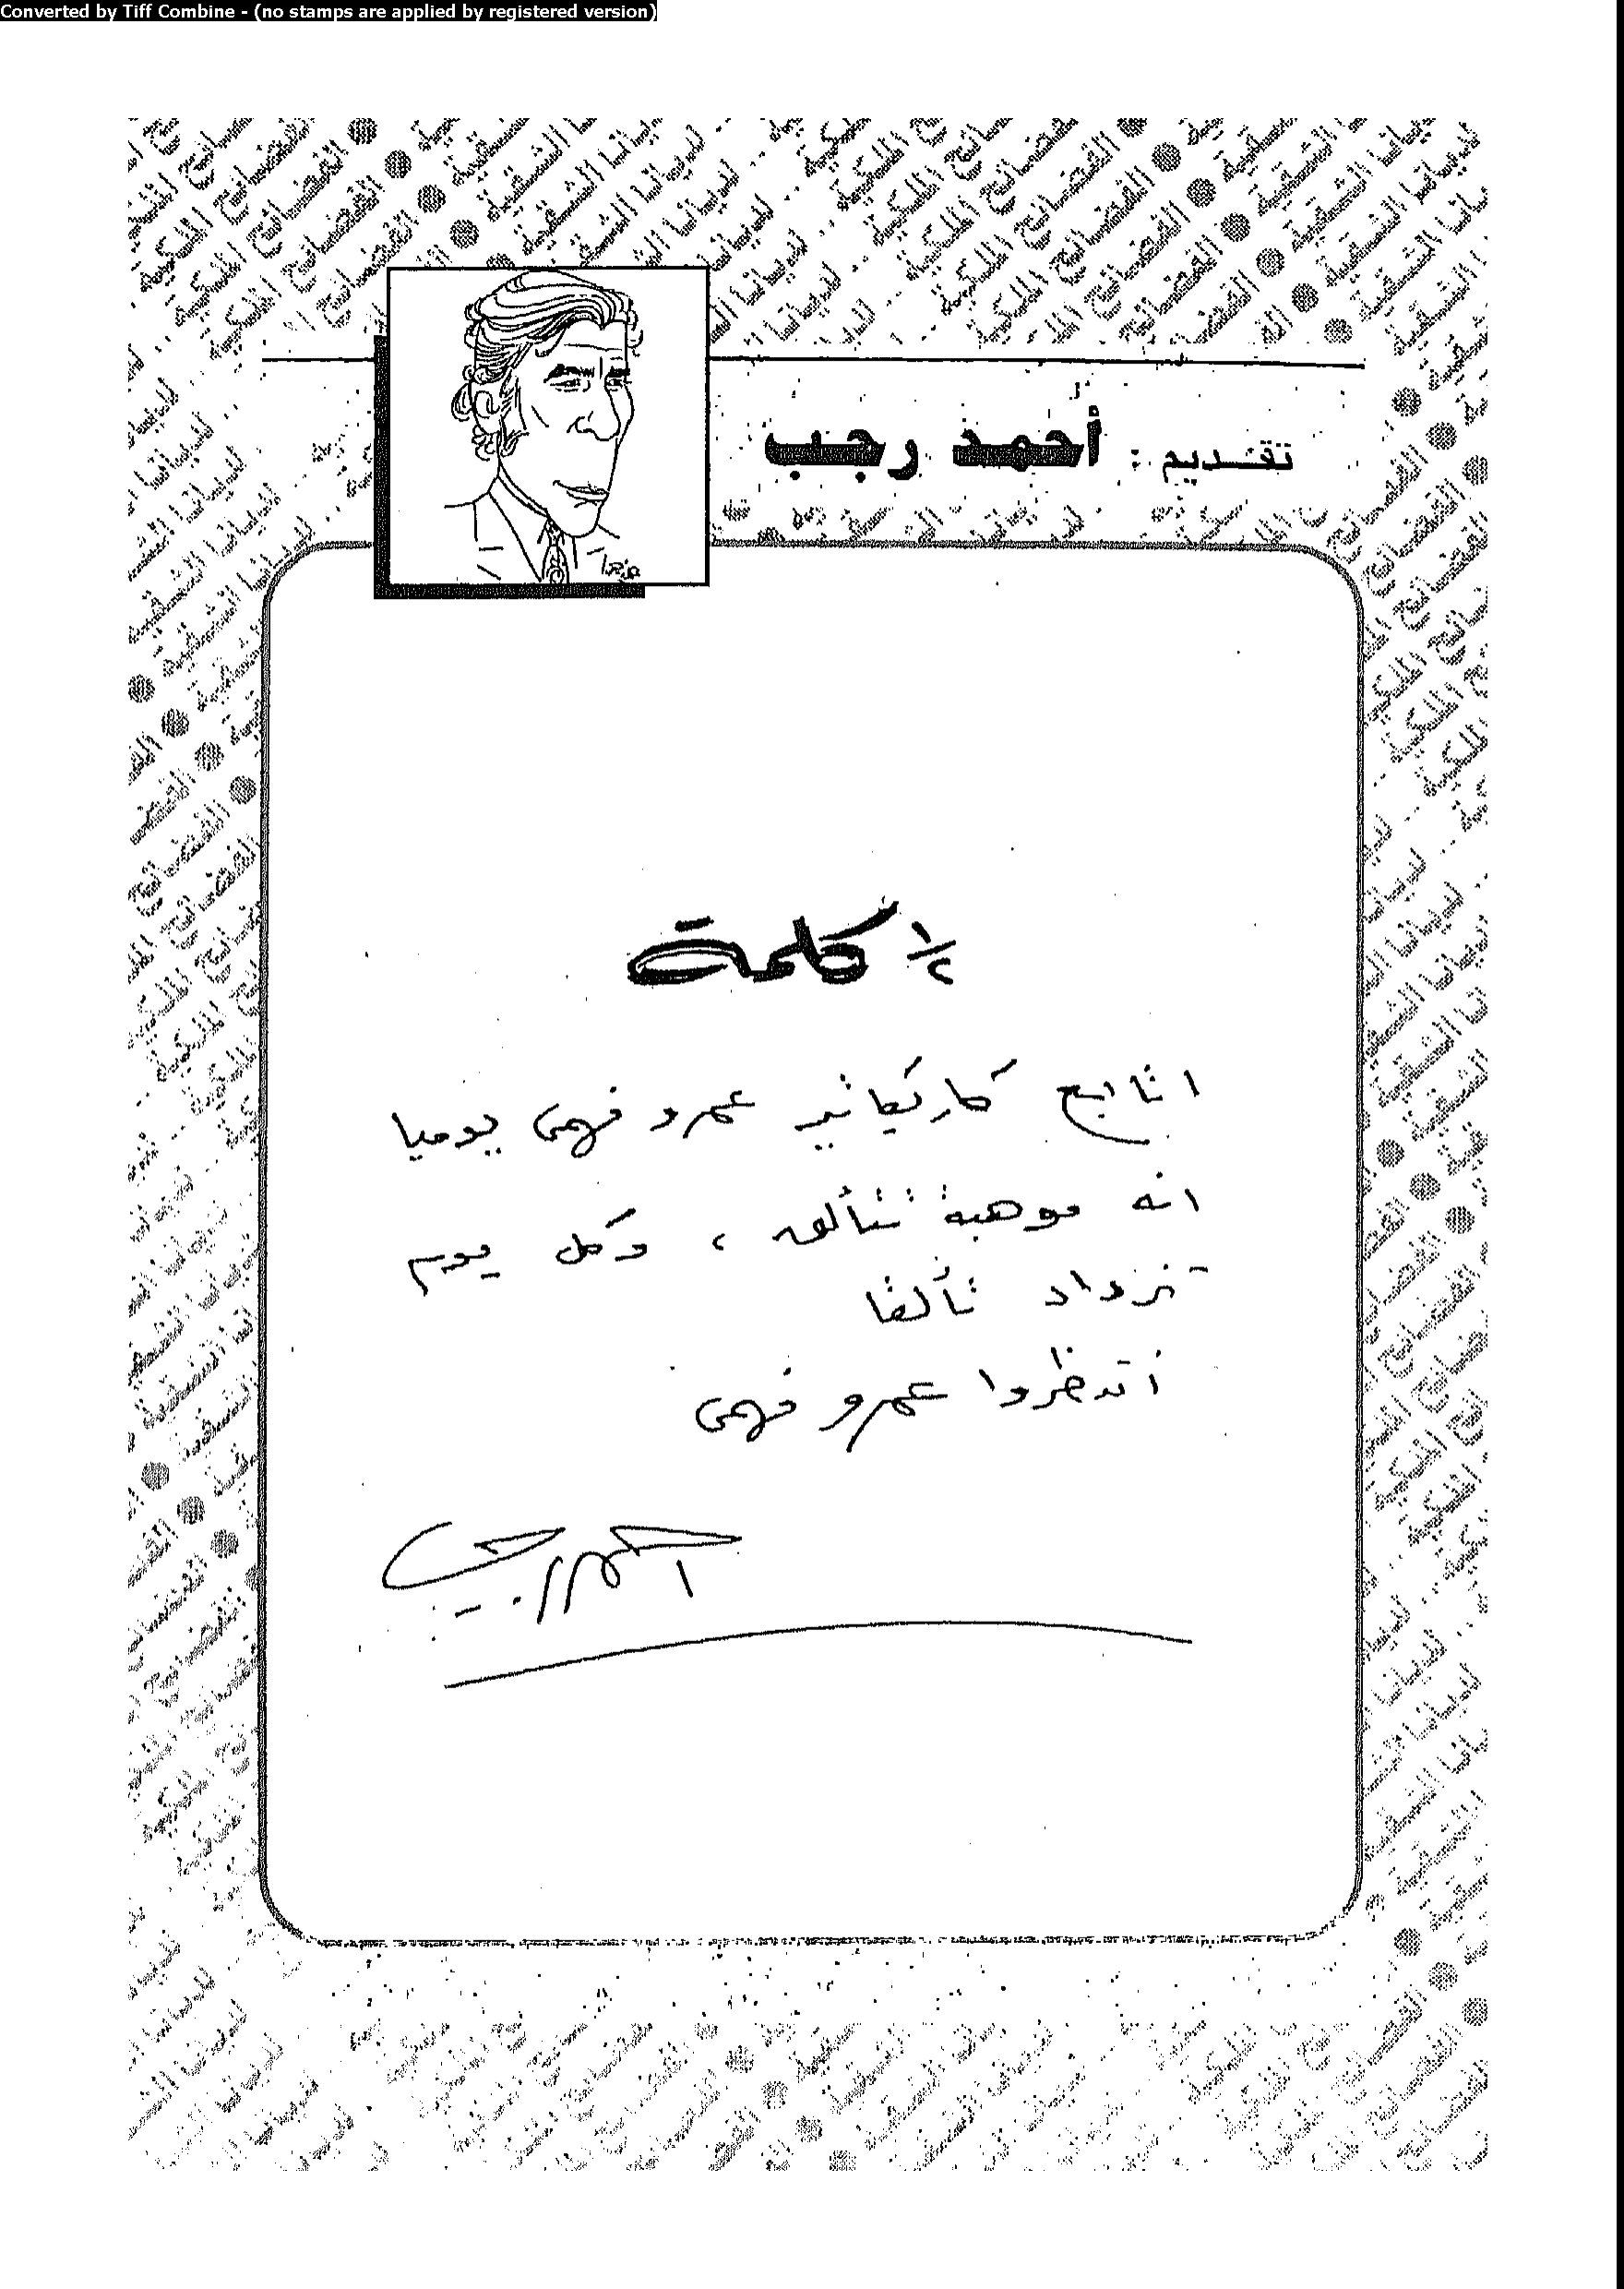 Converted by Tiff Combine - (no stamps are applied by registered version)
تقديم : أحمد رجب
١/٢ كلمة
اتابع كاريكاتير عمرو فهمى يوميا
انه موهبة تتألق ، وكل يوم
تزداد تألقا
انتظروا عمرو فهمى
احمد رجب
الفضائح الملكية .. لديانا الشقية